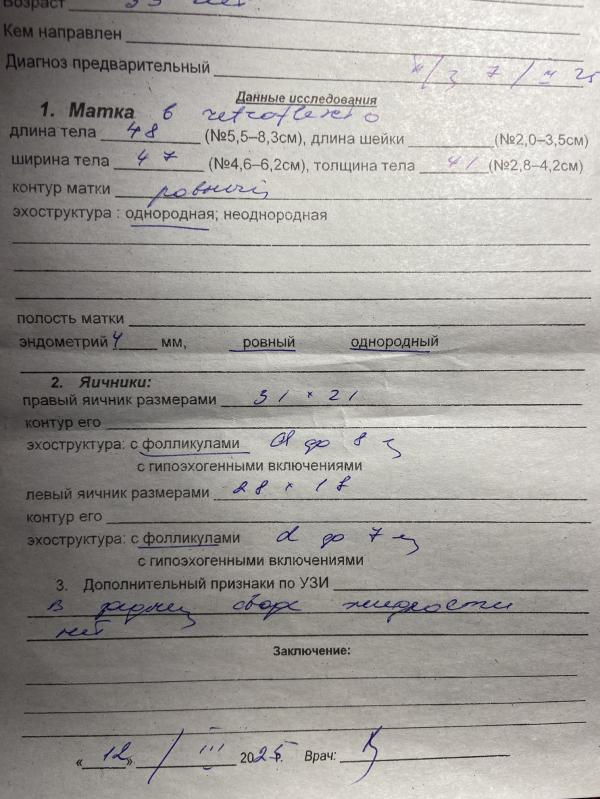 Возраст 33 лет
Кем направлен
Диагноз предварительный 7 / III 25
Данные исследования
1. Матка в retroflexio
длина тела 48 (№5,5–8,3см), длина шейки (№2,0–3,5см)
ширина тела 47 (№4,6–6,2см), толщина тела 41 (№2,8–4,2см)
контур матки ровный
эхоструктура : однородная; неоднородная
полость матки
эндометрий 4 мм, ровный однородный
2. Яичники:
правый яичник размерами 31 × 21
контур его
эхоструктура: с фолликулами d до 8 мм
с гипоэхогенными включениями
левый яичник размерами 28 × 18
контур его
эхоструктура: с фолликулами d до 7 мм
с гипоэхогенными включениями
3. Дополнительный признаки по УЗИ
В заднем своде жидкости
нет
Заключение:
«12» / III 2025г. Врач: